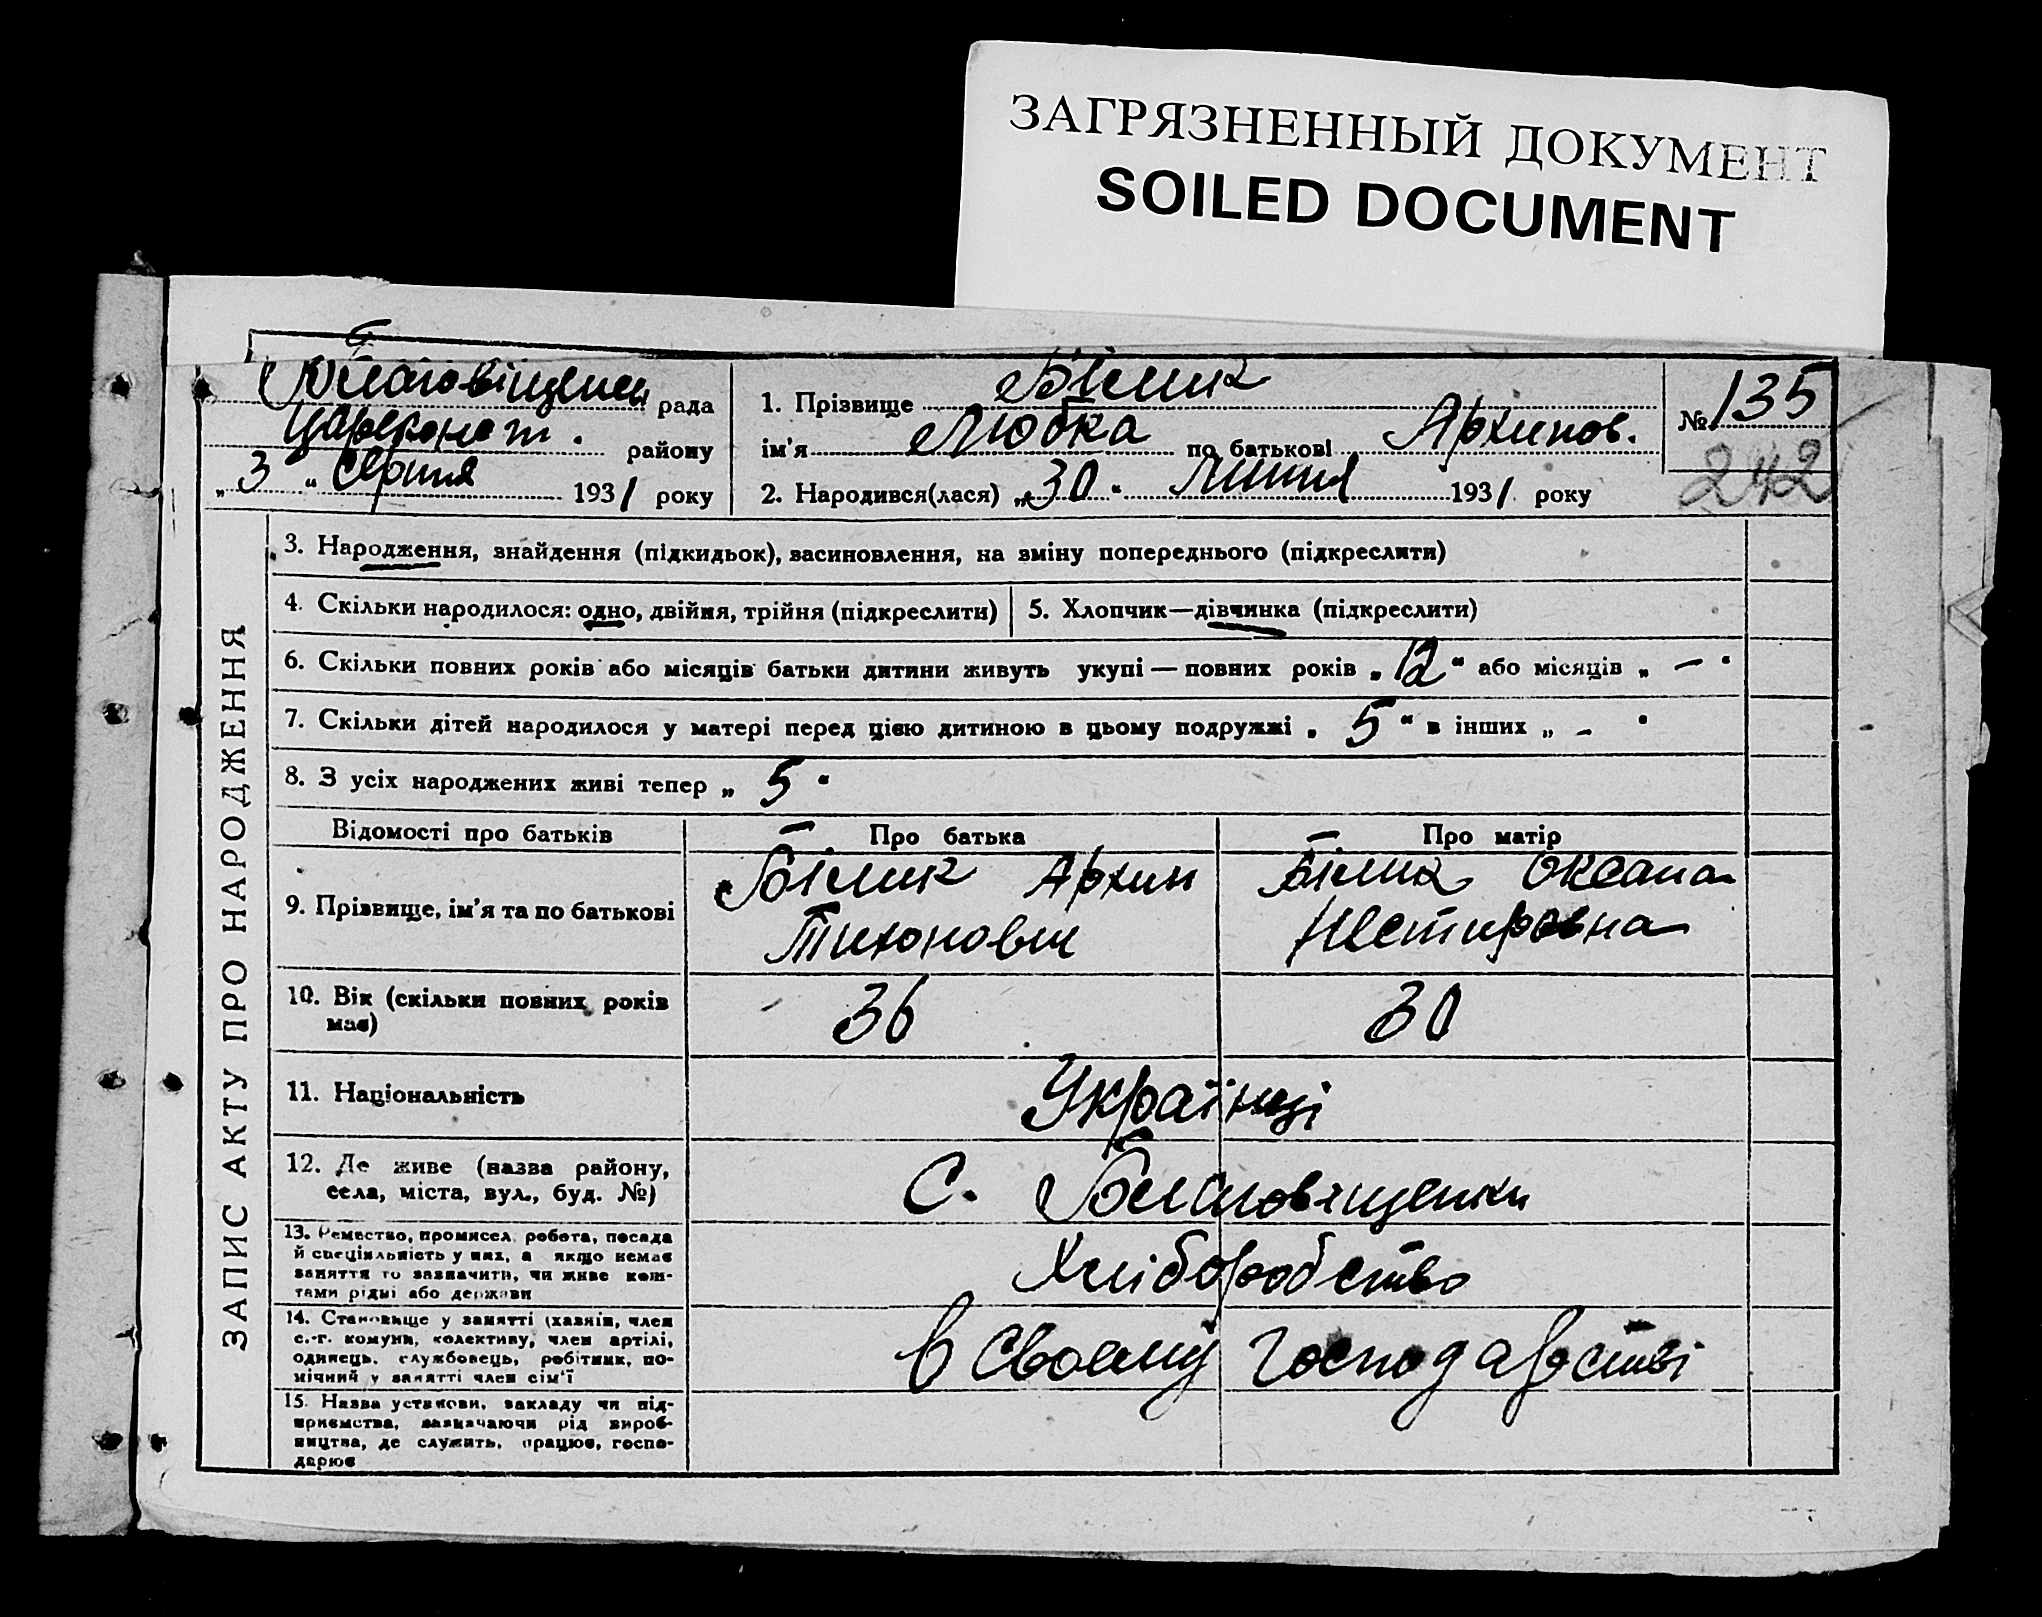 ЗАГРЯЗНЕННЫЙ ДОКУМЕНТ
SOILED DOCUMENT
рада
району
„ 3 " Серпня 1931 року
1. Прізвище Білик
ім'я Любка по батькові Архипов.
2. Народився(лася) „30" Липня 1931 року
№ 135
242
ЗАПИС АКТУ ПРО НАРОДЖЕННЯ
3. Народження, знайдення (підкидьок), васиновлення, на зміну попереднього (підкреслити)
4. Скільки народилося: одно, двійня, трійня (підкреслити)
5. Хлопчик—дівчинка (підкреслити)
6. Скільки повних років або місяців батьки дитини живуть укупі — повних років „12" або місяців „ — "
7. Скільки дітей народилося у матері перед цією дитиною в цьому подружжі „ 5 " в інших „ – "
8. З усіх народжених живі тепер „ 5 "
Відомості про батьків
Про батька
Про матір
9. Прізвище, ім'я та по батькові
Білик Архип
Тихонович
Білик Оксана
Нестировна
10. Вік (скільки повних років
має)
36
30
11. Національність
Українці
12. Де живе (назва району,
села, міста, вул., буд. №)
С. Благовіщенки
13. Ремество, промисел, робота, посада
й спеціяльність у них, а якщо немає
заняття то зазначити, чи живе кош-
тами рідні або держави
Хліборобство
14. Становище у занятті (хазяїн, член
с.-г. комуни, колективу, член артілі,
одинець, службовець, робітник, по-
мічний у занятті член сім'ї
в своєму господарстві
15. Назва установи, закладу чи під-
приємства, зазначаючи рід вироб-
ництва, де служить, працює, госпо-
дарює